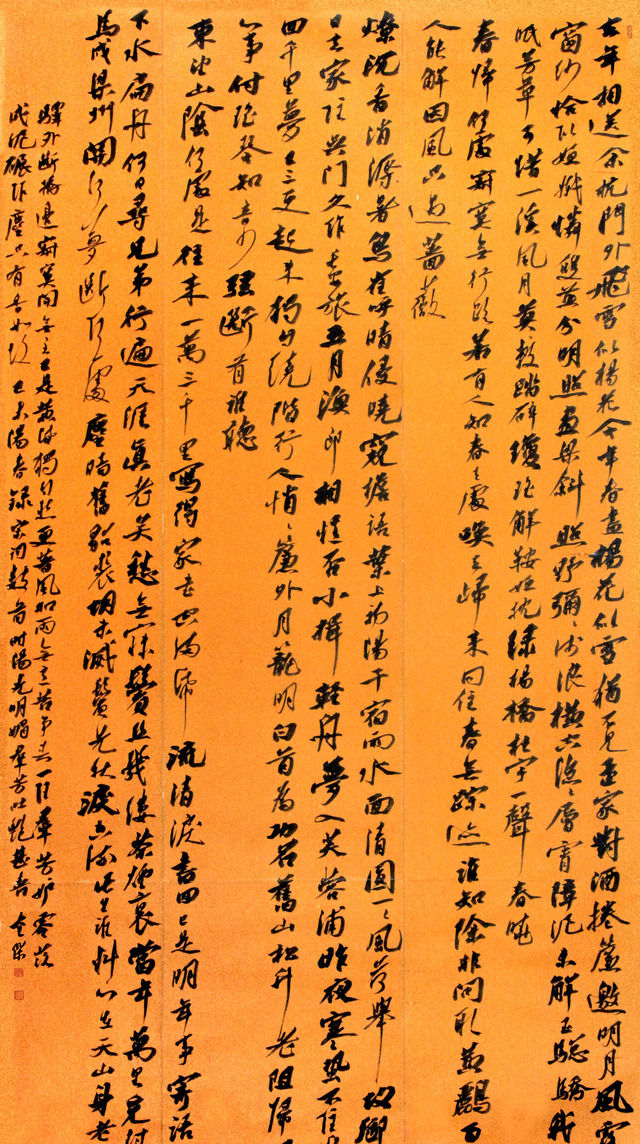 去年相送余杭門外飛雪似楊花今年春盡楊花似雪猶不見還家對酒捲簾邀明月風露
窗紗恰似姮娥憐雙燕分明照畫梁斜照野瀰瀰淺浪橫空隱隱層霄障泥未解玉驄驕我
眠芳草可惜一溪風月莫教踏碎瓊瑤解鞍欹枕綠楊橋杜宇一聲春曉
春歸何處寂寞無行路若有人知春去處喚取歸來同住春無踪迹誰知除非問取黃鸝百
人能解因風吹過薔薇
燎沉香消溽暑鳥雀呼晴侵曉窺檐語葉上初陽干宿雨水面清圓一一風荷舉故鄉
日去家住吳門久作長安旅五月漁郎相憶否小楫輕舟夢入芙蓉浦昨夜寒蛩不住
回千里夢已三更起來獨自繞階行人悄悄簾外月籠明白首為功名舊山松竹老阻歸
心事付瑤琴知音少弦斷有誰聽
東望山陰何處是往來一萬三千里寫得家書空滿紙流清淚書回已是明年事寄語
下水扁舟何日尋兄弟行遍天涯真老矣愁無寐鬢絲幾縷茶煙裏當年萬里覓封
馬戍梁州關河夢斷何處塵暗舊貂裘胡未滅鬢先秋淚空流此生誰料心在天山身老
驛外斷橋邊寂寞開無主已是黃昏獨自愁更著風和雨無意苦爭春一任群芳妒零落
成泥碾作塵只有香如故己未陽春錄宋詞數首時陽光明媚群芳吐艷